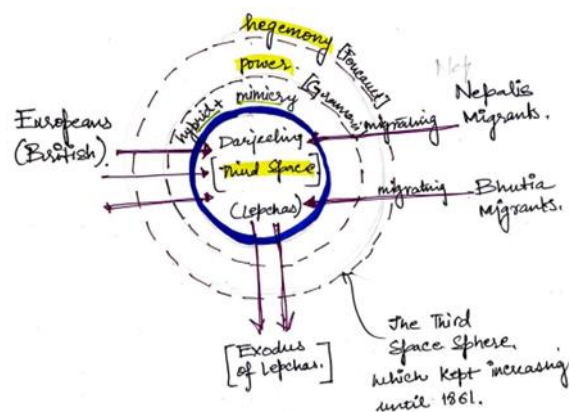 hegemony
[Foucault]
power.
[Gramsci]
hybrid+ mimicry
Europeans
(British).
Darjeeling
[Third Space.]
(Lepchas)
migrating
Nepalis
Migrants.
migrating
Bhutia
Migrants.
[Exodus
of Lepchas.]
The Third
Space Sphere,
which kept increasing
until 1861.